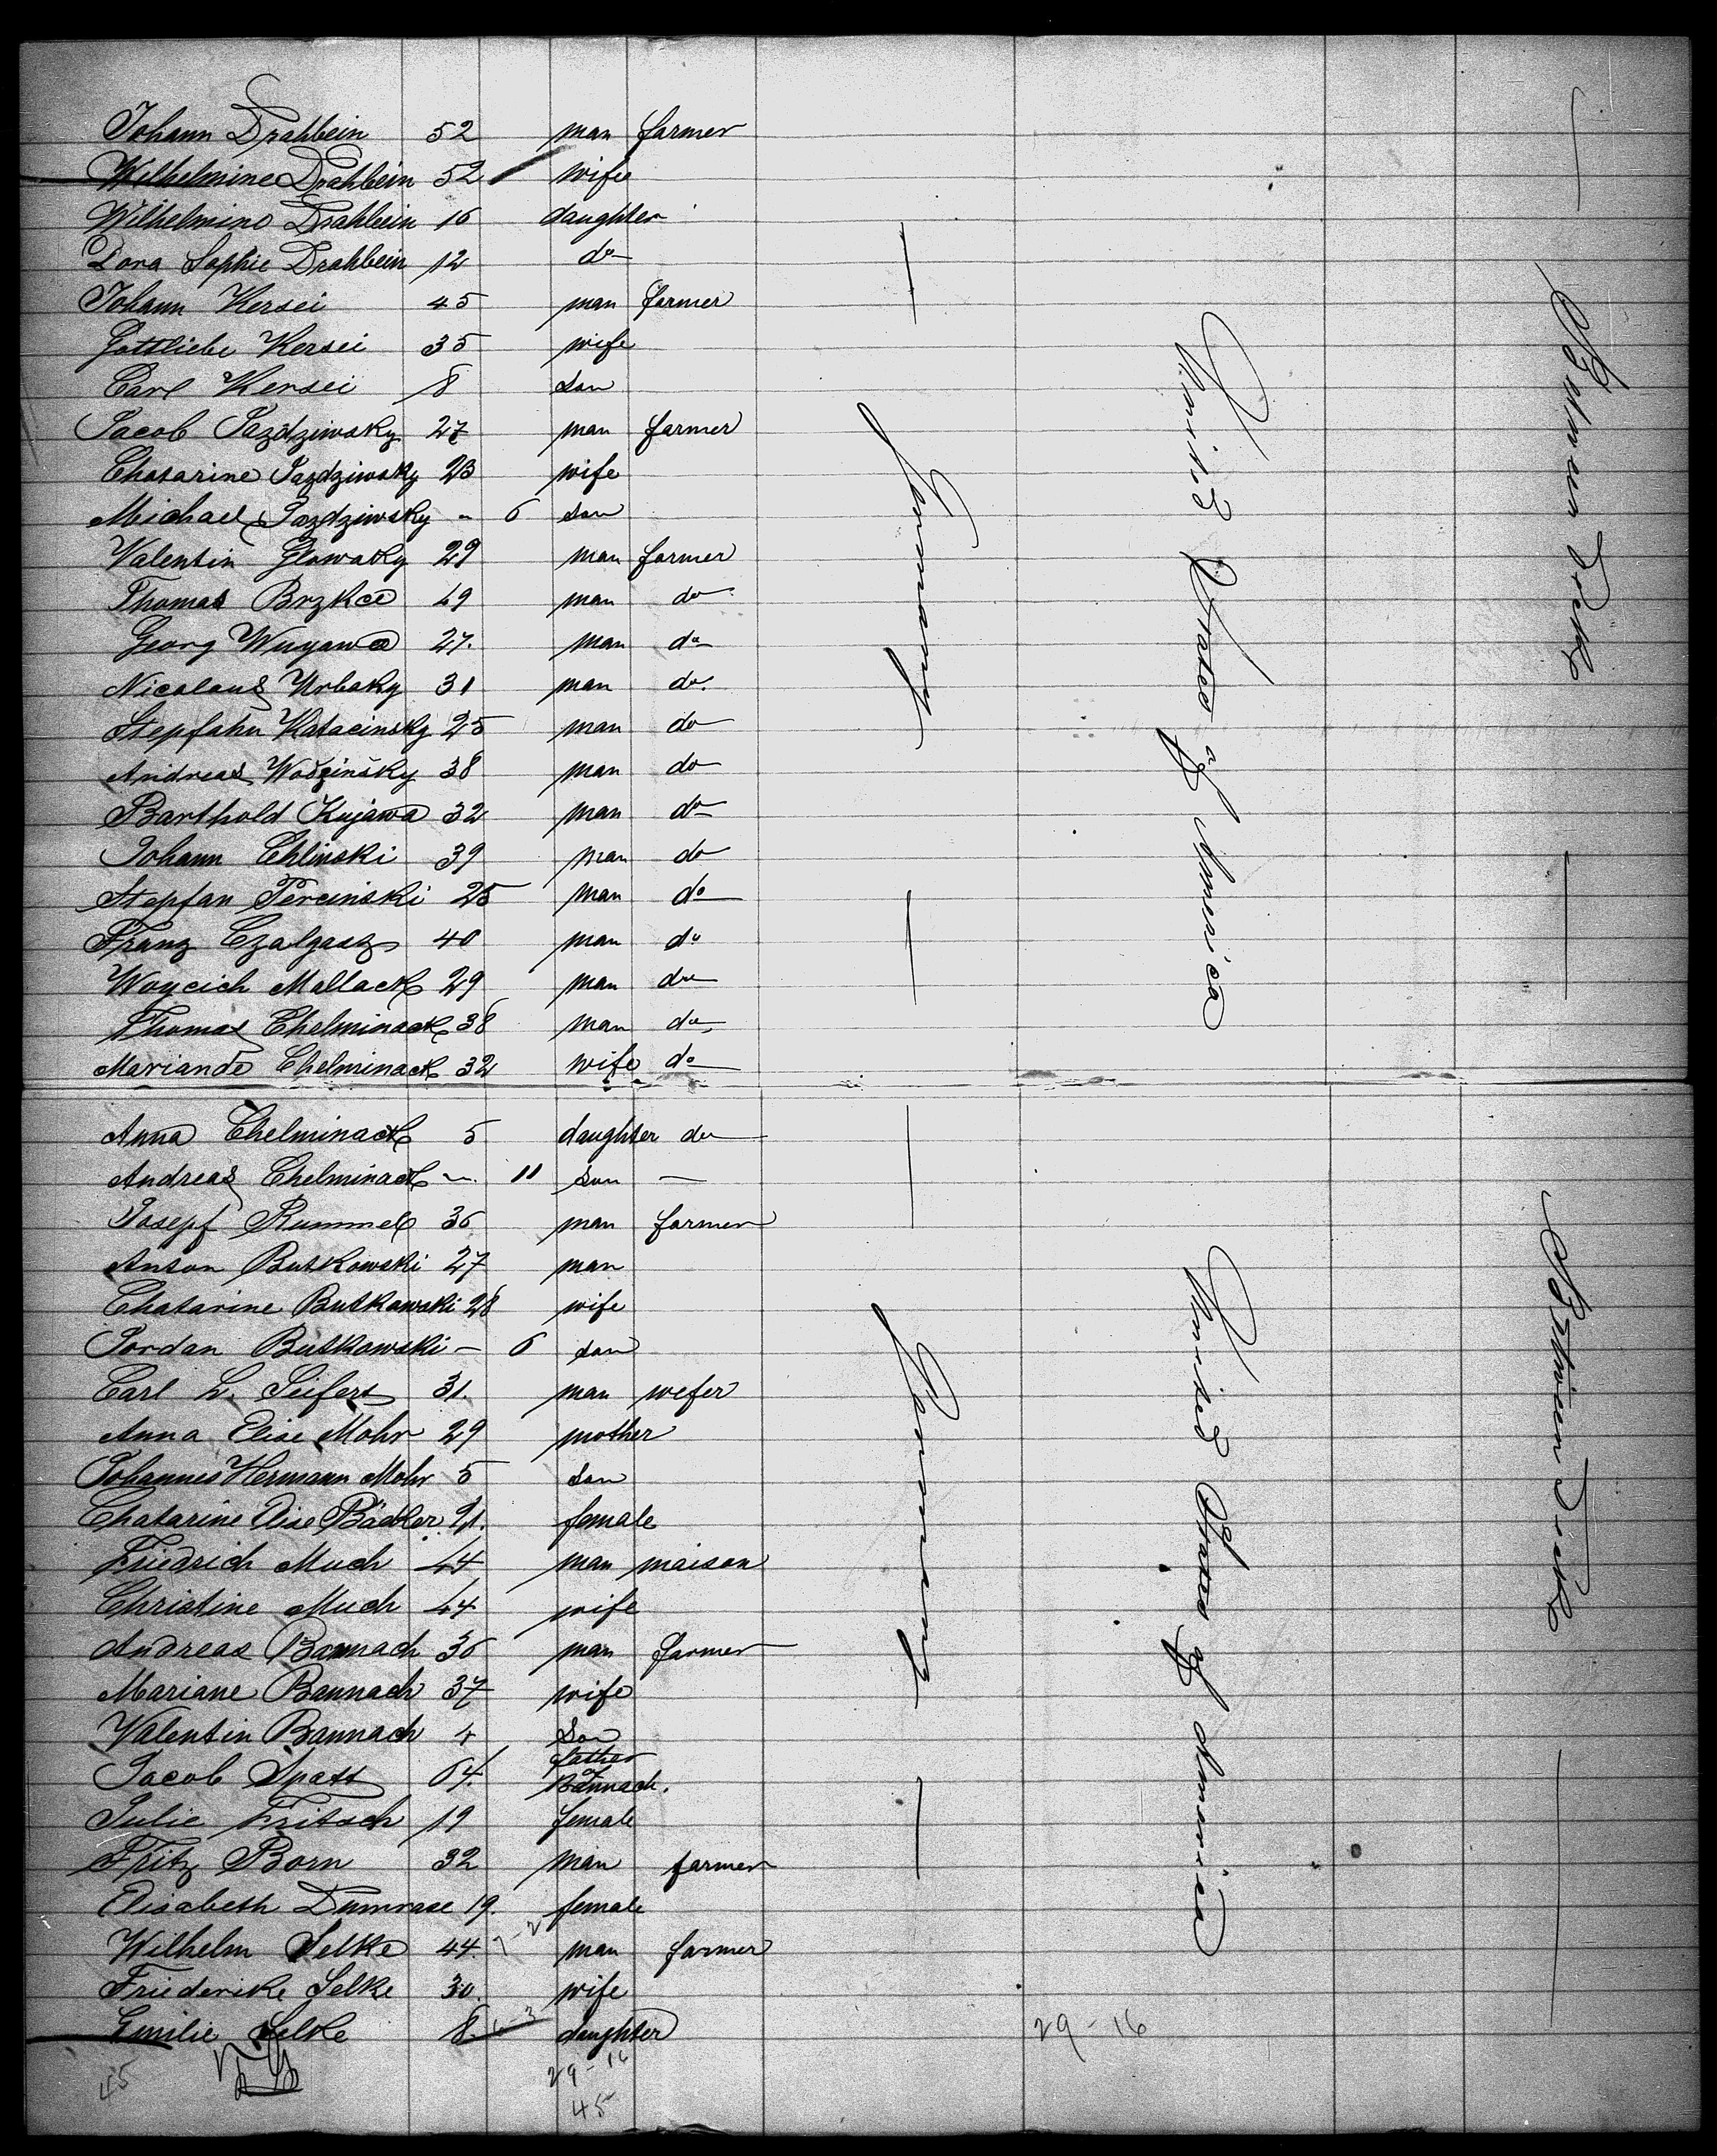 Johann Drahbein 52 man farmer
Wilhelmine Drahbein 52 wife
Wilhelmine Drahbein 16 daughter
Dora Sophie Drahbein 12 do
Johann Kersei 45 man farmer
Gottliebe Kersei 35 wife
Carl Kersei 8 son
Jacob Jazdziwsky 27 man farmer
Chatarine Jazdziwsky 23 wife
Michael Jazdziwsky - 6 son
Valentin Glowatzky 29 man farmer
Thomas Brzkce 49 man do
Georg Wuyawa 27. man do
Nicolaus Urbaky 31 man do.
Stepfahn Katacinsky 25 man do
Andreas Wodzinsky 38 man do
Barthold Kujawa 32 man do
Johann Chlinski 39 man do
Stepfan Percinski 25 man do
Franz Czalgasz 40 man do
Woycich Mallack 29 man do
Thomas Chelminack 38 man do,
Mariande Chelminack 32 wife do
Germany
United States of America
Anna Chelminack 5 daughter do
Andreas Chelminack - 11 son —
Josepf Rummel 36 man farmer
Anton Butkowski 27 man
Chatarine Butkowski 28 wife
Jordan Butkowski - 6 son
Carl L. Seifert 31. man wefer
Anna Elise Mohr 29 mother
Johannes Hermann Mohr 5 son
Chatarine Elise Bäcker 21. female
Friedrich Much 44 man maison
Christine Much 44 wife
Andreas Bannach 36 man farmer
Mariane Bannach 37 wife
Valentin Bannach 4 son
Jacob Spatt 64. father Bannach.
Julie Fritsch 19 female
Fritz Born 32 man farmer
Elisabeth Dumrase 19. female
Wilhelm Selke 44. man farmer
Friederike Selke 30. wife
Emilie Selke 8. daughter
29-16
45
29-16
45
Germany
United States of America